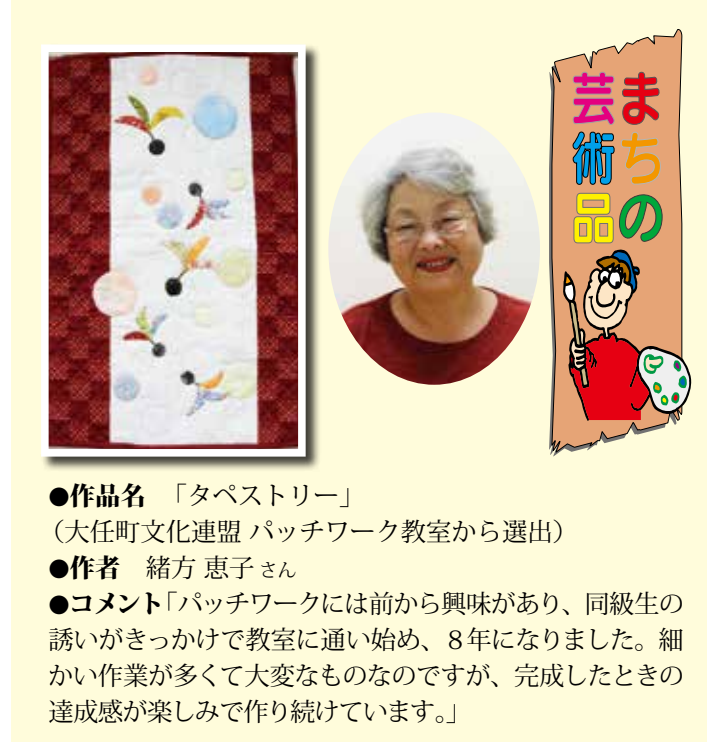 まちの
芸術品
●作品名　「タペストリー」
（大任町文化連盟 パッチワーク教室から選出）
●作者　緒方 恵子さん
●コメント「パッチワークには前から興味があり、同級生の
誘いがきっかけで教室に通い始め、８年になりました。細
かい作業が多くて大変なものなのですが、完成したときの
達成感が楽しみで作り続けています。」